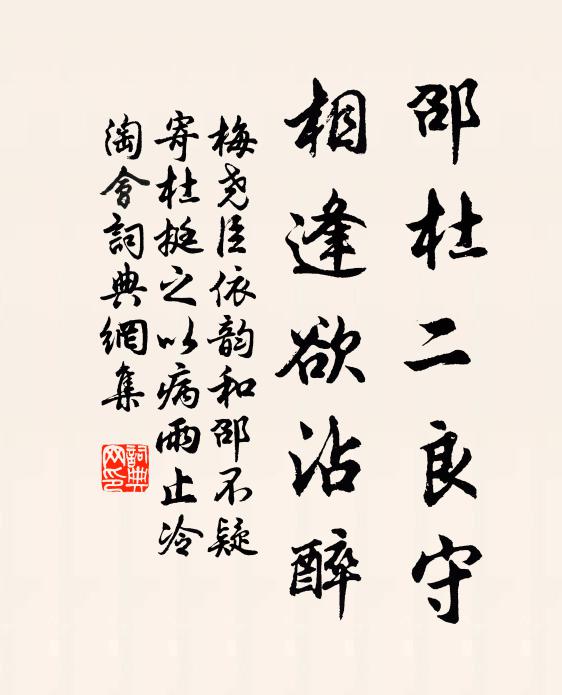 邵杜二良守
相逢欲沾醉
梅尧臣依韵和邵不疑
寄杜挺之以病雨止冷
淘會詞典網集
詞典網印